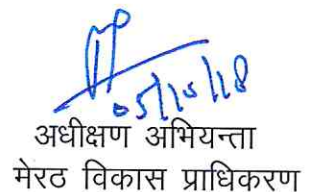 05/10/18
अधीक्षण अभियन्ता
मेरठ विकास प्राधिकरण